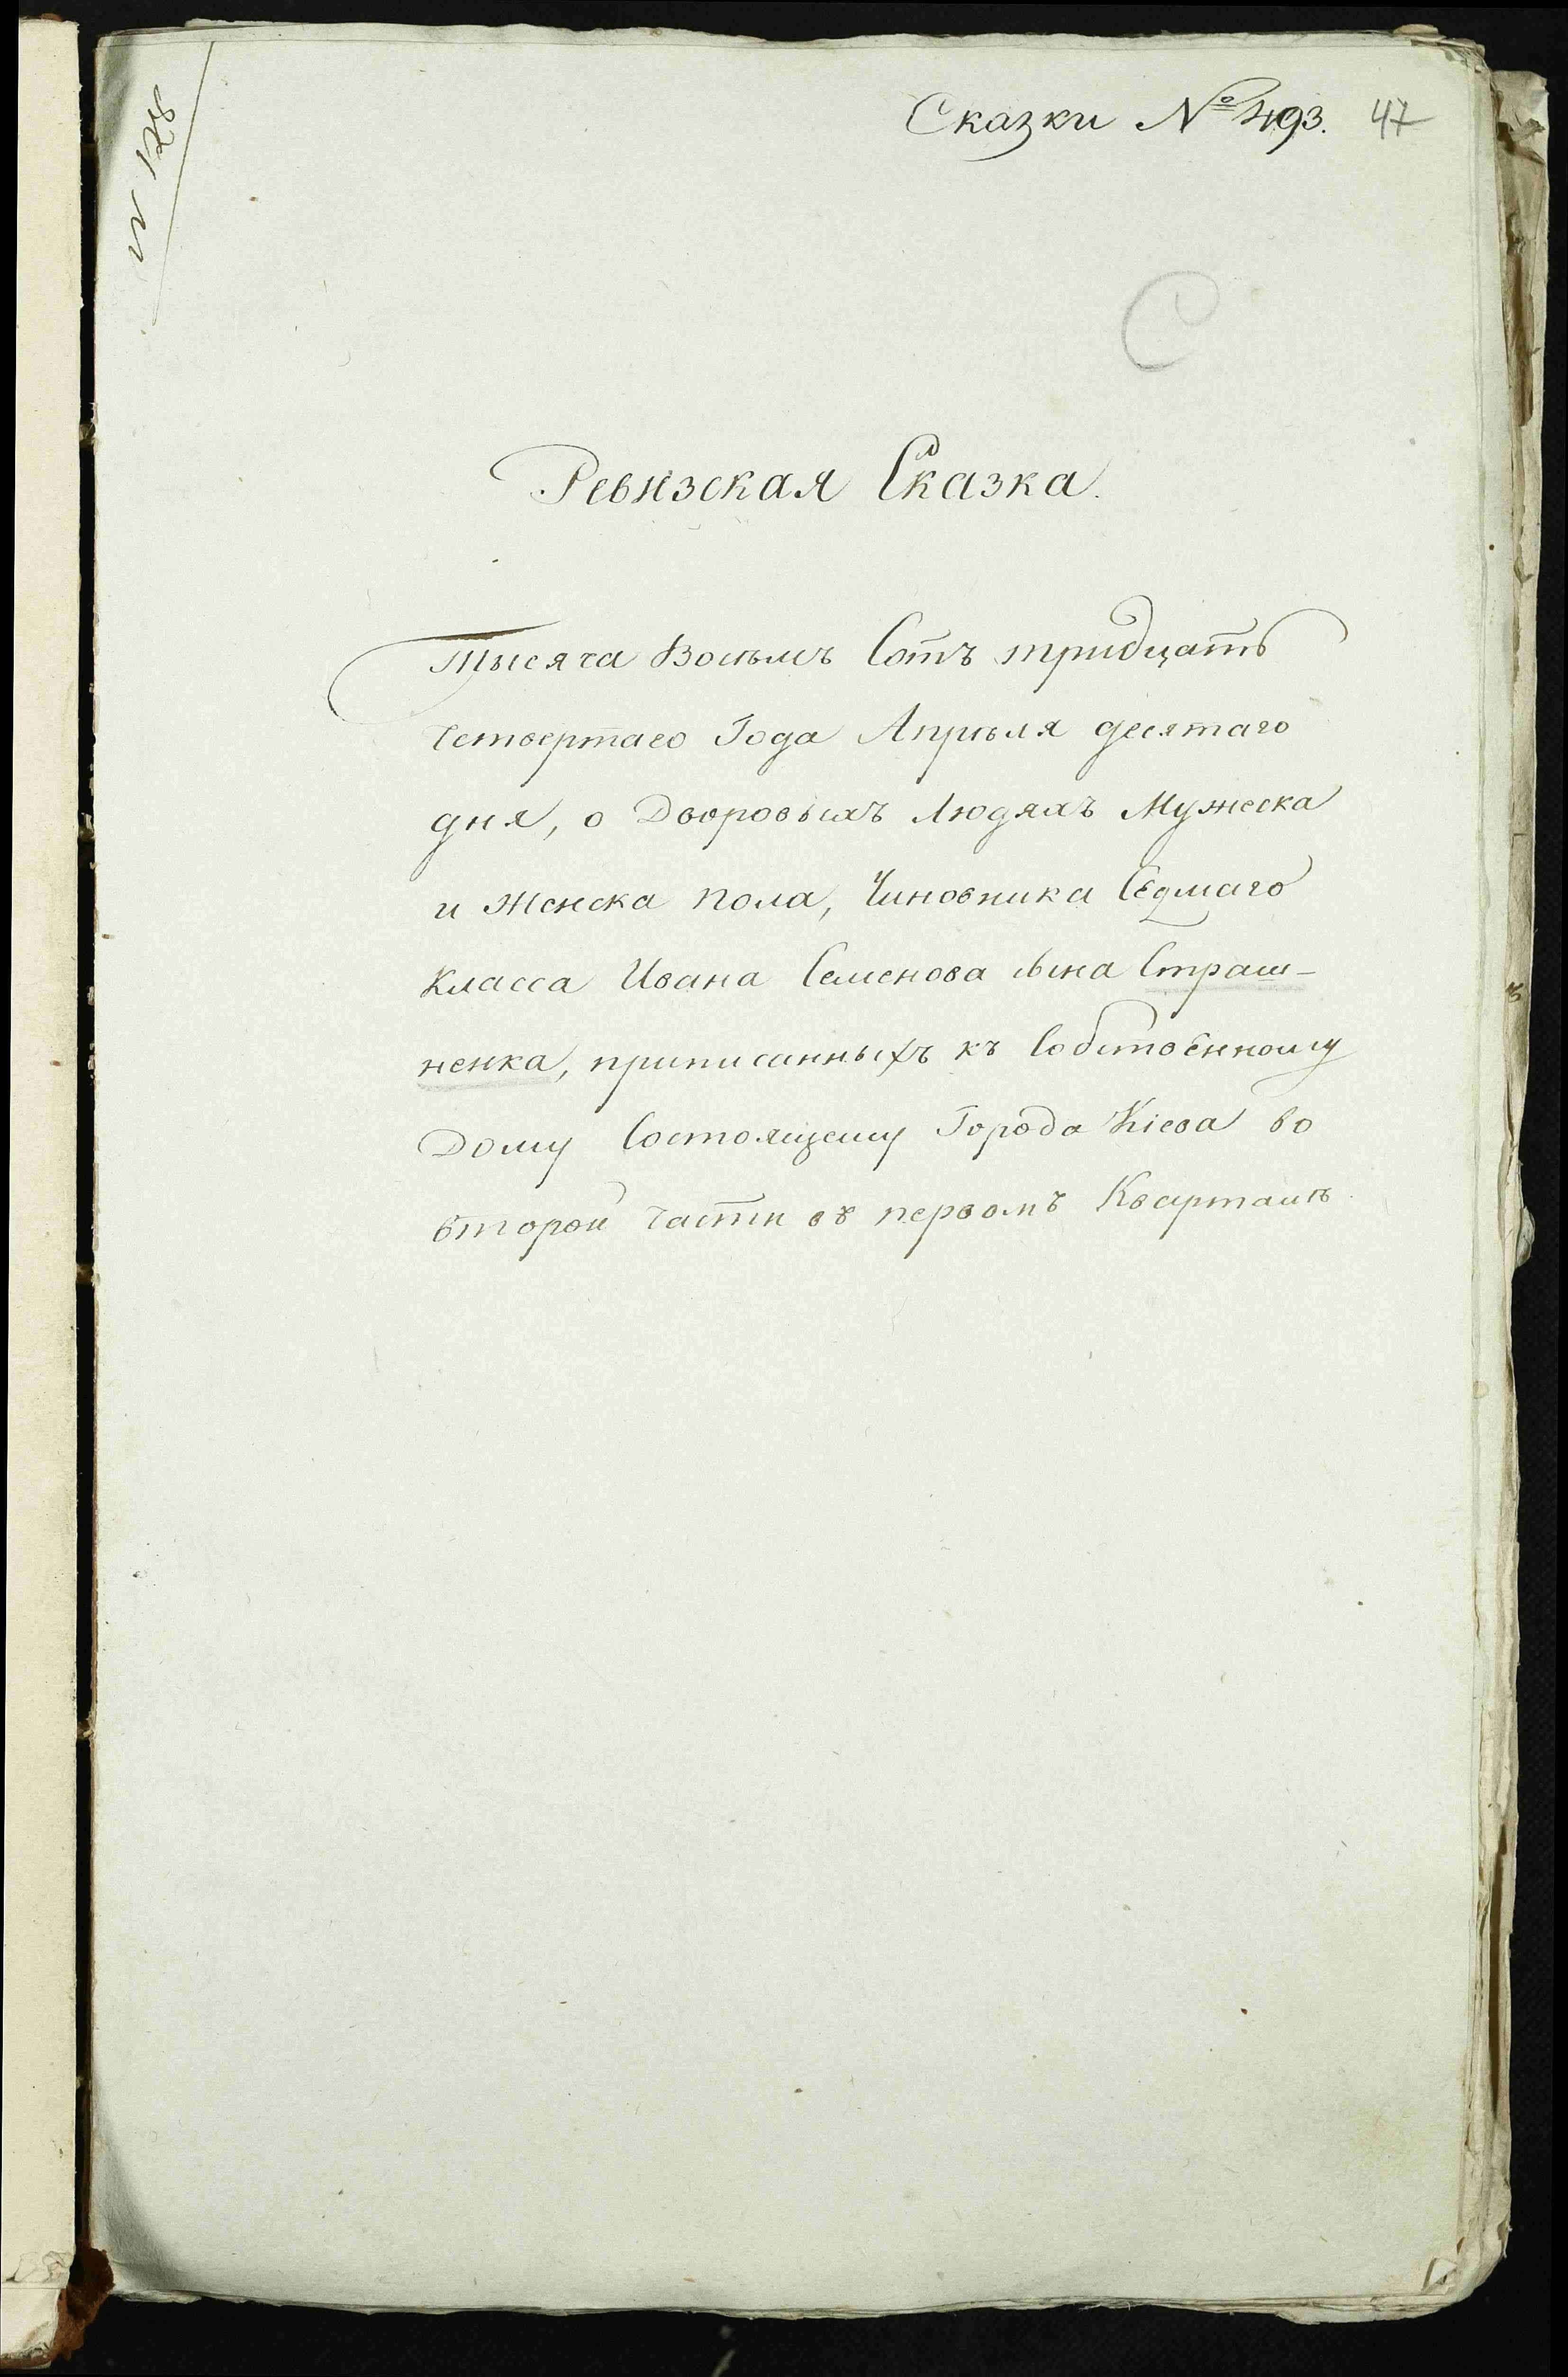 Сказки № 493. 47
С
Ревизская Сказка.
Тысяча Восьмъ Сотъ тридцать
четвертаго Года Апрѣля десятаго
дня, о Дворовыхъ Людяхъ Мужеска
и Женска пола, Чиновника Седмаго
класса Ивана Семенова сына Страш-
ненка, приписанныхъ къ Собственному
Дому Состоящему Города Кіева во
второй части въ первомъ Кварталѣ